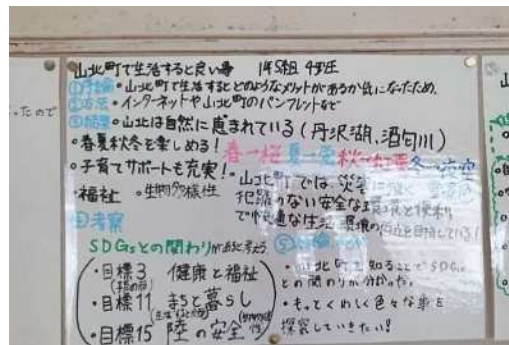 山北町で生活すると良い事 1年5組 4班
①序論・山北町で生活するとどのようなメリットがあるか気になったため。
②方法・インターネットや山北町のパンフレットなど
③結果・山北は自然に恵まれている(丹沢湖、酒匂川)
・春夏秋冬を楽しめる!
春→桜 夏→ 秋→紅葉 冬→
・子育てサポートも充実!
・福祉 ・生物多様性
山北町では、災害に強く
犯罪のない安全な環境と便利
で快適な生活環境の両立を目指している!
④考察
SDGsとの関わりがあると考えた
・目標3 健康と福祉
・目標11 まちと暮らし
・目標15 陸の安全
⑤
・山北町を知ることでSDGs
との関わりが分かった。
・もってくわしく色々な事を
探究していきたい!
ったので